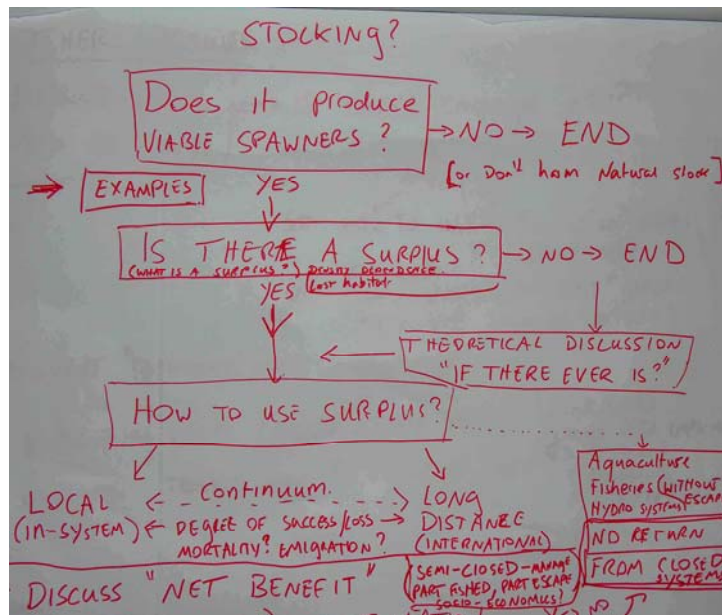 STOCKING?
Does it produce
VIABLE SPAWNERS? → NO → END
[or Don't harm Natural stock]
→ EXAMPLES YES
IS THERE A SURPLUS? → NO → END
(WHAT IS A SURPLUS?) DENSITY DEPENDENCE
Lost habitat
YES
THEORETICAL DISCUSSION
"IF THERE EVER IS?"
HOW TO USE SURPLUS?
LOCAL
(IN-SYSTEM)
Continuum.
DEGREE OF SUCCESS/LOSS
MORTALITY? EMIGRATION?
LONG
DISTANCE
(INTERNATIONAL)
Aquaculture
Fisheries (WITHOUT
HYDRO SYSTEMS ESCAPE
NO RETURN
FROM CLOSED
SYSTEMS
DISCUSS "NET BENEFIT"
(SEMI-CLOSED-MANAGE
PART FISHED, PART ESCAPE
SOCIO-ECONOMICS)